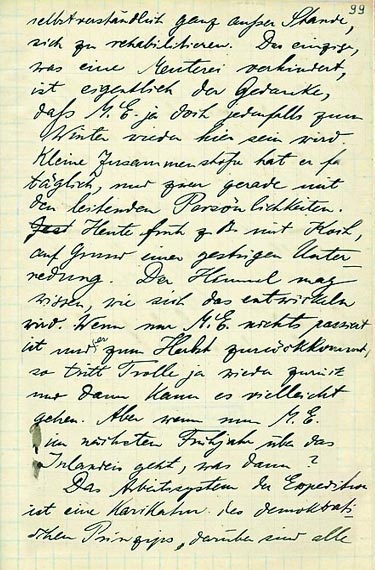 99
selbstverständlich ganz außer Stande,
sich zu rehabilitieren. Das einzige,
was eine Meuterei verhindert,
ist eigentlich der Gedanke,
daß M.E. ja doch jedenfalls zum
Winter wieder hier sein wird
Kleine Zusammenstöße hat er fa
täglich, und zwar gerade mit
den leitenden Persönlichkeiten.
Heute früh z.B. mit Koch,
auf Grund einer gestrigen Unter-
redung. Der Himmel mag
wissen, wie sich das entwickeln
wird. Wenn nur M.E. nichts passiert
ist und er zum Herbst zurückkommt,
so tritt Trolle ja wieder zurück
und dann kann es vielleicht
gehen. Aber wenn nun M.E.
im nächsten Frühjahr über das
Inlandeis geht, was dann?
Das Arbeitssystem der Expedition
ist eine Karikatur des demokrati-
schen Prinzips, darüber sind alle